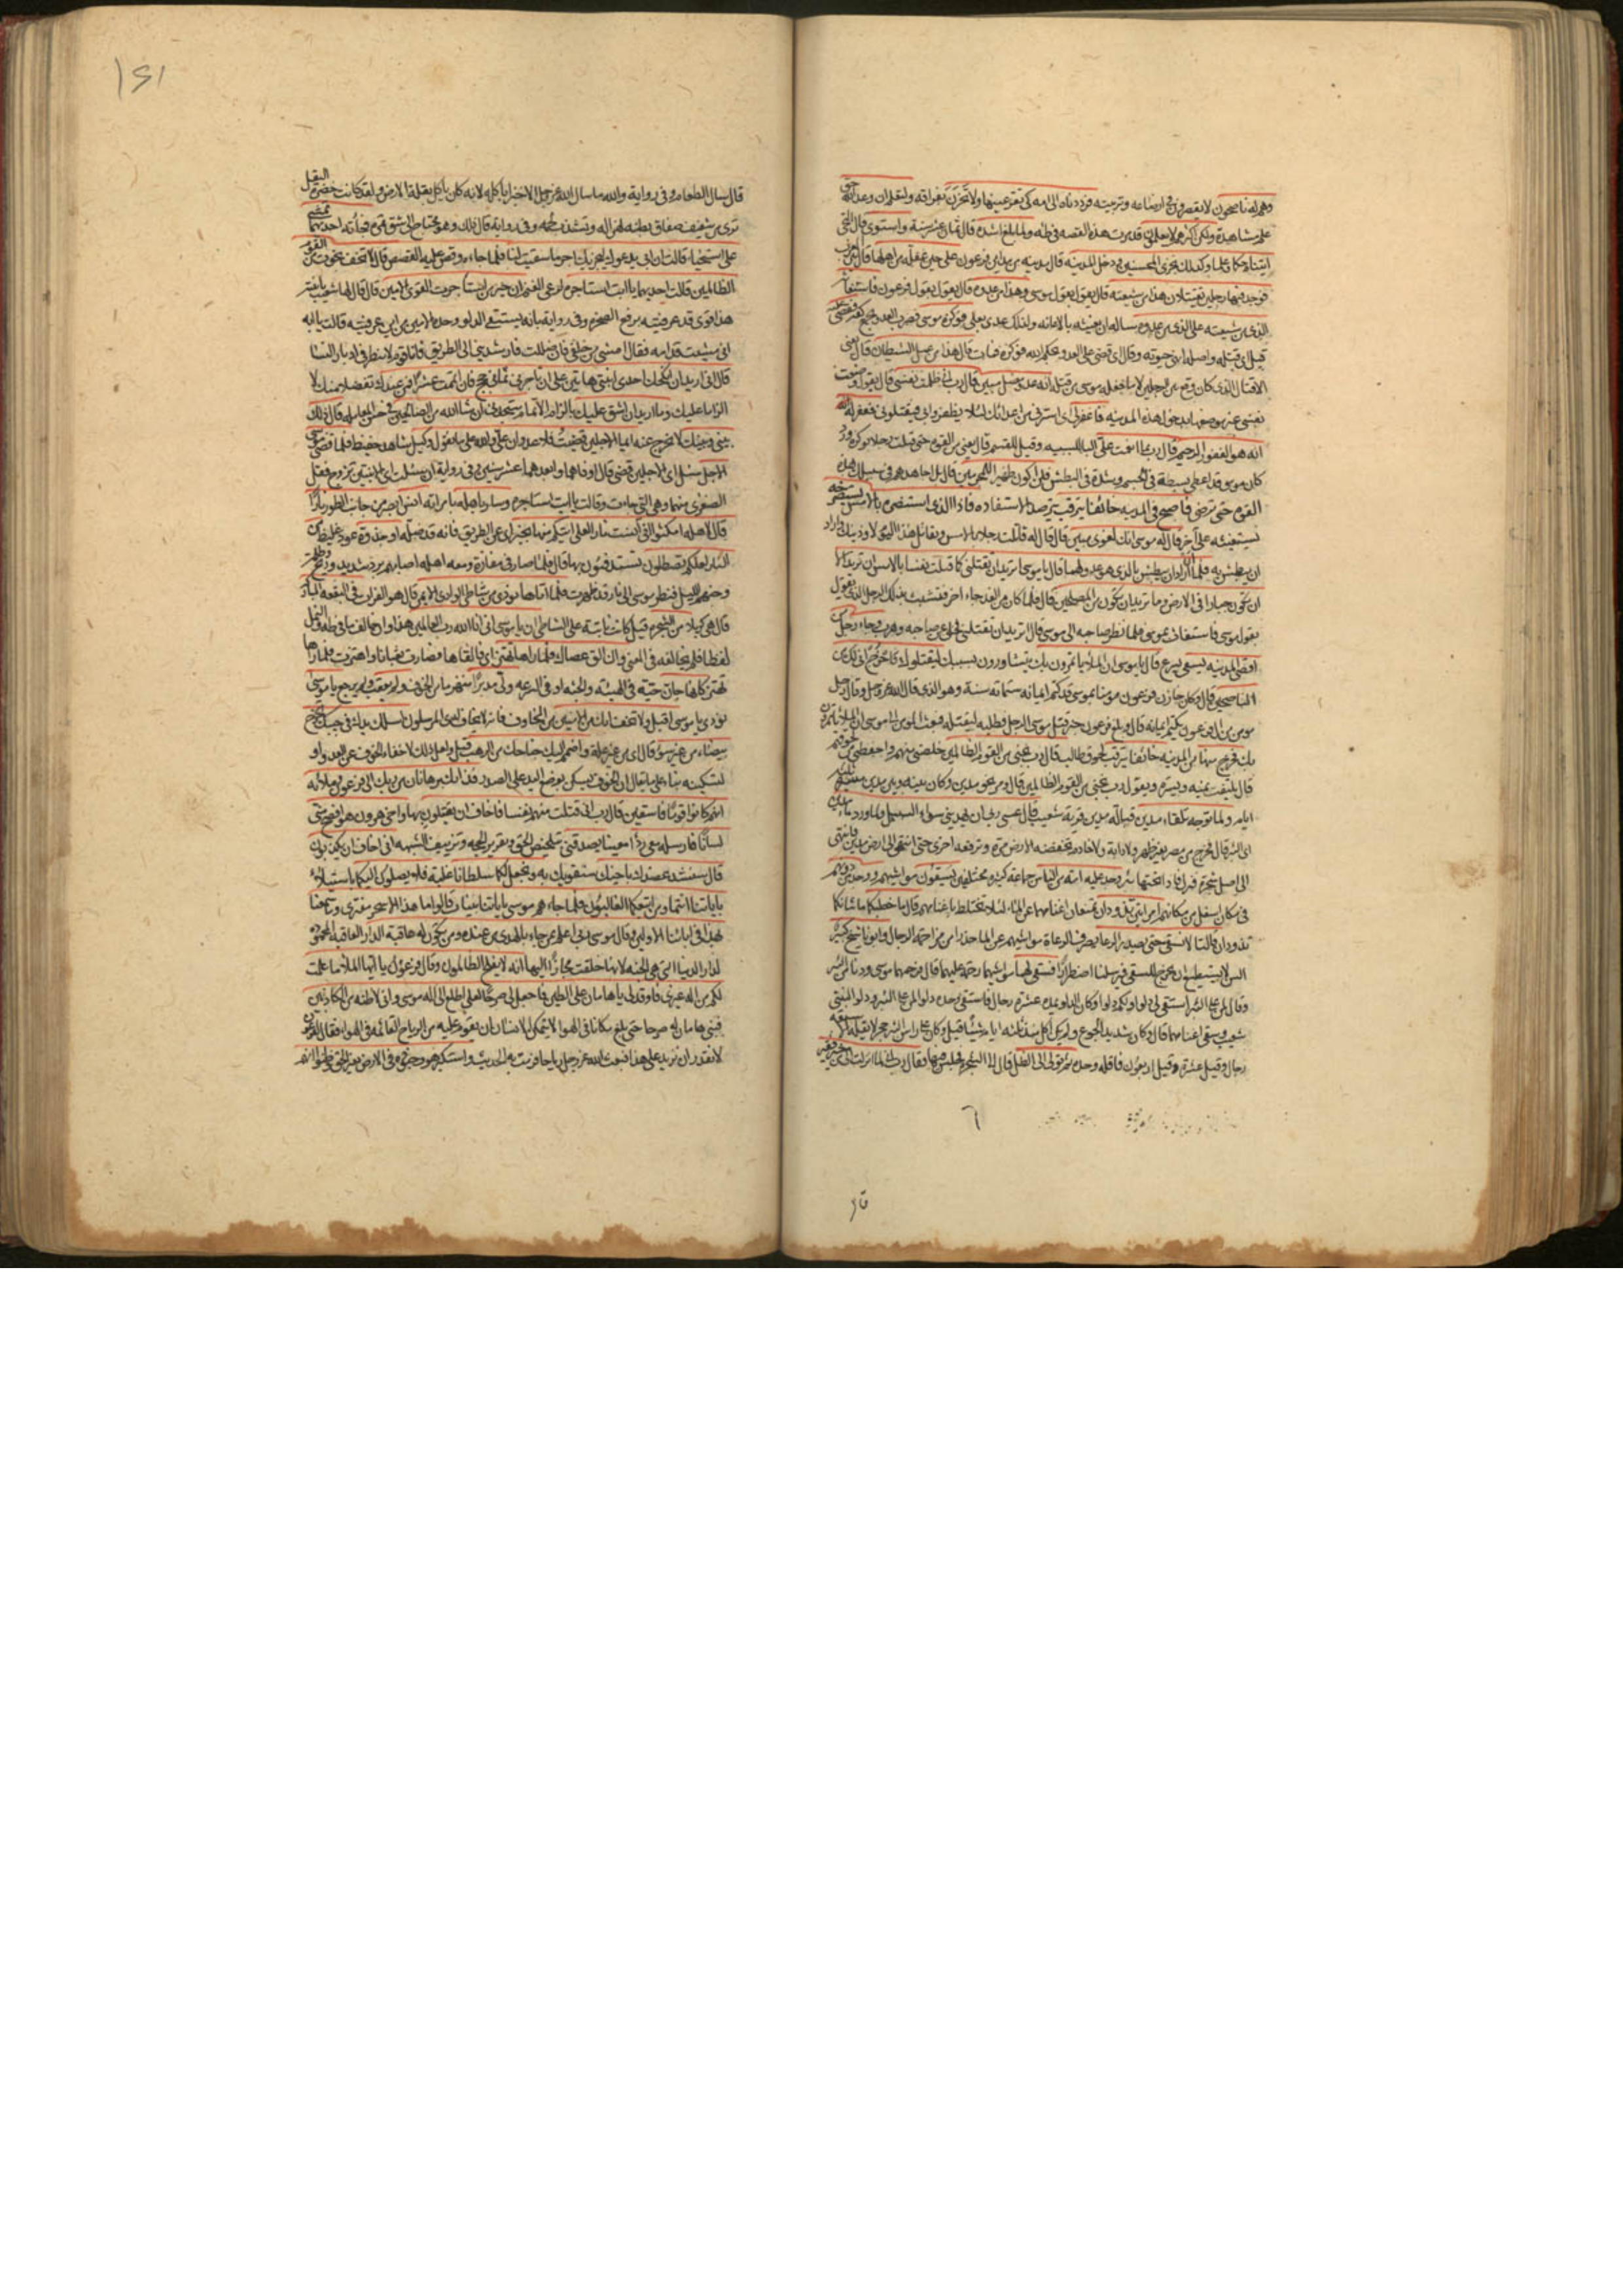 وهم له ناصحون لا يقصرون في ارضاعه وتربيته فرددناه الى امه كى تقر عينها ولا تحزن بفراقه ولتعلم ان وعد الله حق
علم مشاهدة ولكن اكثرهم لا يعلمون قد مرت هذه القصه في طه ولما بلغ اشده قال ثمان عشر سنة واستوى قال التحى
اتيناه حكما وعلما وكذلك نجزى المحسنين ودخل المدينه قال مدينه من مداين فرعون على حين غفلة من اهلها قال
فوجد فيها رجلين يقتتلان هذا من شيعته قال يقول بقول موسى وهذا من عدوه قال يقول بقول فرعون فاستغاثه
الذى من شيعته على الذى من عدوه سأله ان يغيثه بالاعانه ولذلك عدى بعلى فوكزه موسى فضرب العدو بجمع كفه فقضى عليه
قيل اى قتله واصله انهى حيوته وقال اى قضى على العدو بحكم الله فوكزه فمات قال هذا من عمل الشيطان قال يعنى
الاقتتال الذى كان وقع بين الرجلين لا ما فعله موسى من قتله انه عدو مضل مبين قال رب انى ظلمت نفسى قال يقول وضعت
نفسى غير موضعها بدخولى هذه المدينه فاغفر لى اى استرنى من اعدائك لئلا يظفروا بى فيقتلونى فغفر له
انه هو الغفور الرحيم قال رب بما انعمت على الباء للسببيه وقيل للقسم قال يعنى من القوه حتى قتلت رجلا بوكزه
كان موسى قد اعطى بسطة فى الجسم وشدة فى البطش فلن اكون ظهيرا للمجرمين قال بل اجاهدهم فى سبيلك بهذه
القوه حتى ترضى فاصبح فى المدينه خائفا يترقب يترصد الاستقاده فاذا الذى استنصره بالامس يستصرخه
يستغيثه على آخر قال له موسى انك لغوى مبين قال قال له قاتلت رجلا بالامس وتقاتل هذا اليوم لاوذينك واراد
ان يبطش به فلما ان اراد ان يبطش بالذى هو عدو لهما قال يا موسى اتريد ان تقتلنى كما قتلت نفسا بالامس ان تريد الا
ان تكون جبارا فى الارض وما تريد ان تكون من المصلحين قال فلما كان من الغد جاء اخر فتشبث بذلك الرجل الذى يقول
بقول موسى فاستغاث بموسى فلما نظر صاحبه الى موسى قال تريد ان تقتلنى فخلى عن صاحبه وهرب وجاء رجل من
اقصى المدينه يسعى يسرع قال يا موسى ان الملأ ياتمرون بك يتشاورون بسببك ليقتلوك فاخرج انى لك من
الناصحين قال وكان خازن فرعون مومنا بموسى قد كتم ايمانه ستمائة سنة وهو الذى قال الله عز وجل وقال رجل
مومن من ال فرعون يكتم ايمانه قال وبلغ فرعون خبر قتل موسى الرجل فطلبه ليقتله فبعث المومن الى موسى ان الملأ ياتمرون
بك فخرج منها من المدينه خائفا يترقب لحوق طالب قال رب نجنى من القوم الظالمين خلصنى منهم واحفظنى من لحوقهم
قال يلتفت يمنة ويسرة ويقول رب نجنى من القوم الظالمين قال ومر نحو مدين وكان بينه وبين مدين مسيرة ثلثه
ايام ولما توجه تلقاء مدين قبالة مدين قرية شعيب قال عسى ربى ان يهدينى سواء السبيل ولما ورد ماء مدين
اى البئر قال خرج من مصر بغير ظهر ولا دابة ولا خادم تخفضه الارض مرة وترفعه اخرى حتى انتهى الى ارض مدين فانتهى
الى اصل شجرة فنزل فاذا تحتها بئر وجد عليه امة من الناس جماعة كثيره مختلفين يسقون مواشيهم ووجد من دونهم
فى مكان اسفل من مكانهم امراتين تذودان تمنعان اغنامهما عن الماء لئلا تختلط باغنامهم قال ما خطبكما ما شانكما
تذودان قالتا لا نسقى حتى يصدر الرعاء يصرف الرعاة مواشيهم عن الماء حذرا من مزاحمة الرجال وابونا شيخ كبير
السن لا يستطيع ان يخرج للسقى فيرسلنا اضطرارا فسقى لهما مواشيهما رحمة عليهما قال فرحمهما موسى ودنا من البئر
وقال لمن على البئر استقى لى دلوا ولكم دلوا وكان الدلو يمده عشرة رجال فاستقى وحده دلوا لمن على البئر ودلوا لبنتى
شعيب وسقى اغنامهما قال وكان شديد الجوع ولم يكن اكل منذ ثلثه ايام شيئا قيل وكان على راس البئر حجر لا يقله الا سبعة
رجال وقيل عشرة وقيل اربعون فاقله وحده ثم تولى الى الظل قال الى الشجره فجلس فيها وقال رب انى لما انزلت الى من خير فقير
قا
١٤١
قال سال الطعام وفى رواية والله ما سال الله عز وجل الا خبزا ياكله لانه كان ياكل بقلة الارض ولقد كانت خضرة البقل
ترى من شفيف صفاق بطنه لهزاله وتشذب لحمه وفى رواية قال ذلك وهو محتاج الى شق تمرة فجائته احديهما تمشى
على استحياء قالت ان ابى يدعوك ليجزيك اجر ما سقيت لنا فلما جاءه وقص عليه القصص قال لا تخف نجوت من القوم
الظالمين قالت احديهما يا ابت استاجره لرعى الغنم ان خير من استاجرت القوى الامين قال قال لها شعيب يا بنية
هذا قوى قد عرفتيه برفع الصخره وفى رواية بانه يستقى الدلو وحده الامين من اين عرفتيه قالت يا ابه
انى مشيت قدامه فقال امشى من خلفى فان ضللت فارشدينى الى الطريق فانا قوم لا ننظر فى ادبار النساء
قال انى اريد ان انكحك احدى ابنتى هاتين على ان تاجرنى ثمانى حجج فان اتممت عشرا فمن عندك تفضلا منك لا
الزاما عليك وما اريد ان اشق عليك بالزام الاتمام ستجدنى ان شاء الله من الصالحين فى حسن المعامله قال ذلك
بينى وبينك لا نخرج عنه ايما الاجلين قضيت فلا عدوان على والله على ما نقول وكيل شاهد حفيظ فلما قضى موسى
الاجل سئل اى الاجلين قضى قال اوفاهما وابعدهما عشر سنين وفى رواية ان سئلت اى الابنتين تزوج فقل
الصغرى منهما وهى التى جاءت وقالت يا ابت استاجره وسار باهله بامراته انس ابصر من جانب الطور نارا
قال لاهله امكثوا انى انست نارا لعلى اتيكم منها بخبر اى عن الطريق فانه قد ضله او جذوة عود غليظ من
النار لعلكم تصطلون تستدفئون بها قال فلما صار فى مفازة ومعه اهله اصابهم برد شديد وريح وظلمة
وجنهم الليل فنظر موسى الى نار قد ظهرت فلما اتاها نودى من شاطئ الوادى الايمن قال هو الفرات فى البقعه المباركه
قال هى كربلاء من الشجره قيل كانت نابتة على الشاطئ ان يا موسى انى انا الله رب العالمين هذا وان خالف ما فى طه والنمل
لفظا فلم يخالفه فى المعنى وان الق عصاك فلما راها تهتز اى فالقاها فصارت ثعبانا واهتزت فلما راها
تهتز كانها جان حية فى الهيئه والجثه او فى السرعه ولى مدبرا منهزما من الخوف ولم يعقب ولم يرجع يا موسى
نودى يا موسى اقبل ولا تخف انك من الامنين من المخاوف فانه لا يخاف لدى المرسلون اسلك يدك فى جيبك تخرج
بيضاء من غير سوء قال اى من غير علة واضمم اليك جناحك من الرهب قيل ولعل ذلك لاخفاء الخوف عن العدو او
لتسكينه بناء على ما يقال ان الخوف يسكن بوضع اليد على الصدر فذانك برهانان من ربك الى فرعون وملائه
انهم كانوا قوما فاسقين قال رب انى قتلت منهم نفسا فاخاف ان يقتلون بها واخى هرون هو افصح منى
لسانا فارسله معى ردءا معينا يصدقنى بتلخيص الحق وتقرير الحجه وتزييف الشبهه انى اخاف ان يكذبون
قال سنشد عضدك باخيك سنقويك به ونجعل لكما سلطانا غلبة فلا يصلون اليكما باستيلاء
باياتنا انتما ومن اتبعكما الغالبون فلما جاءهم موسى باياتنا بينات قالوا ما هذا الا سحر مفترى وما سمعنا
بهذا فى ابائنا الاولين وقال موسى ربى اعلم بمن جاء بالهدى من عنده ومن تكون له عاقبة الدار العاقبه المحموده
لدار الدنيا التى هى الجنه لانها خلقت مجازا اليها انه لا يفلح الظالمون وقال فرعون يا ايها الملأ ما علمت
لكم من اله غيرى فاوقد لى يا هامان على الطين فاجعل لى صرحا لعلى اطلع الى اله موسى وانى لاظنه من الكاذبين
فبنى هامان له صرحا حتى بلغ مكانا فى الهوا لا يتمكن الانسان ان يقوم عليه من الرياح القائمه فى الهواء فقال لفرعون
لا نقدر ان نزيد على هذا فبعث الله عز وجل رياحا فرمت به واستكبر هو وجنوده فى الارض بغير الحق وظنوا انهم